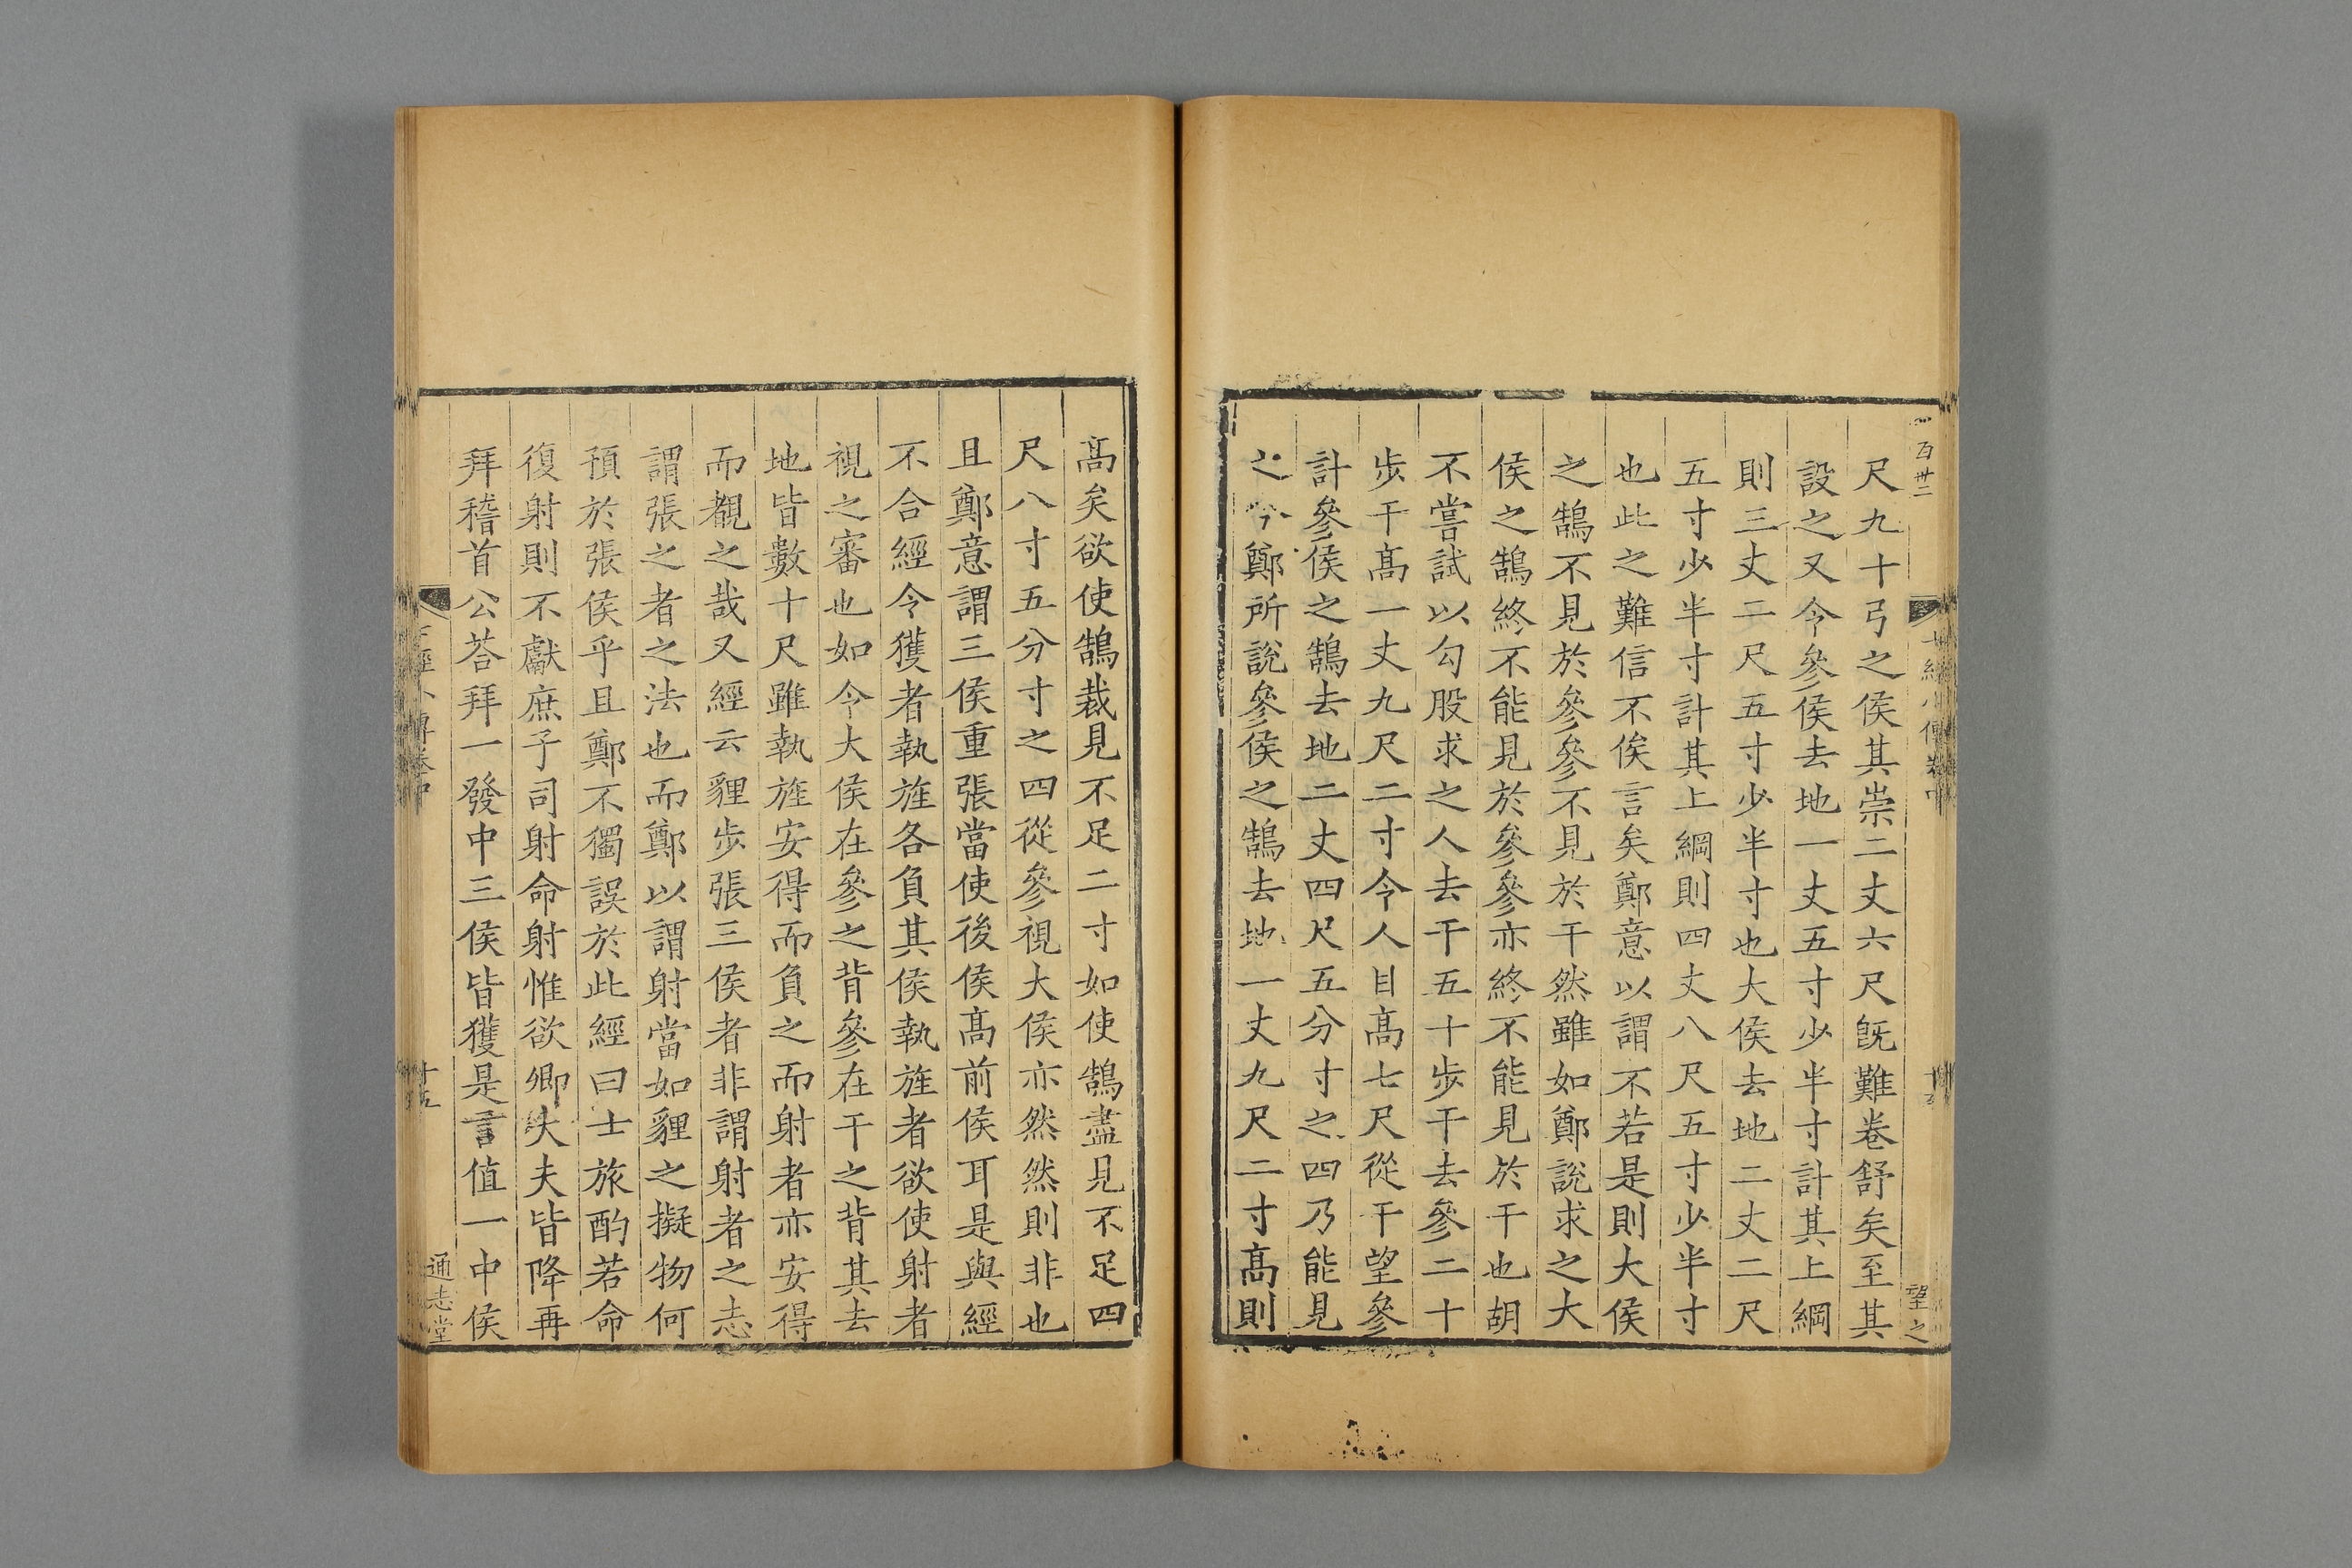 百卅二
望之
尺九十弓之侯其崇二丈六尺旣難卷舒矣至其
設之又令參侯去地一丈五寸少半寸計其上綱
則三丈二尺五寸少半寸也大侯去地二丈二尺
五寸少半寸計其上綱則四丈八尺五寸少半寸
也此之難信不俟言矣鄭意以謂不若是則大侯
之鵠不見於參參不見於干然雖如鄭說求之大
侯之鵠終不能見於參參亦終不能見於干也胡
不嘗試以勾股求之人去干五十步干去參二十
步干高一丈九尺二寸令人目高七尺從干望參
計參侯之鵠去地二丈四尺五分寸之四乃能見
之今鄭所說參侯之鵠去地一丈九尺二寸高則
高矣欲使鵠裁見不足二寸如使鵠盡見不足四
尺八寸五分寸之四從參視大侯亦然然則非也
且鄭意謂三侯重張當使後侯高前侯耳是與經
不合經令獲者執旌各負其侯執旌者欲使射者
視之審也如令大侯在參之背參在干之背其去
地皆數十尺雖執旌安得而負之而射者亦安得
而覩之哉又經云貍步張三侯者非謂射者之志
謂張之者之法也而鄭以謂射當如貍之擬物何
預於張侯乎且鄭不獨誤於此經曰士旅酌若命
復射則不獻庶子司射命射惟欲卿大夫皆降再
拜稽首公荅拜一發中三侯皆獲是言值一中侯
經小傳卷中
十五
通志堂